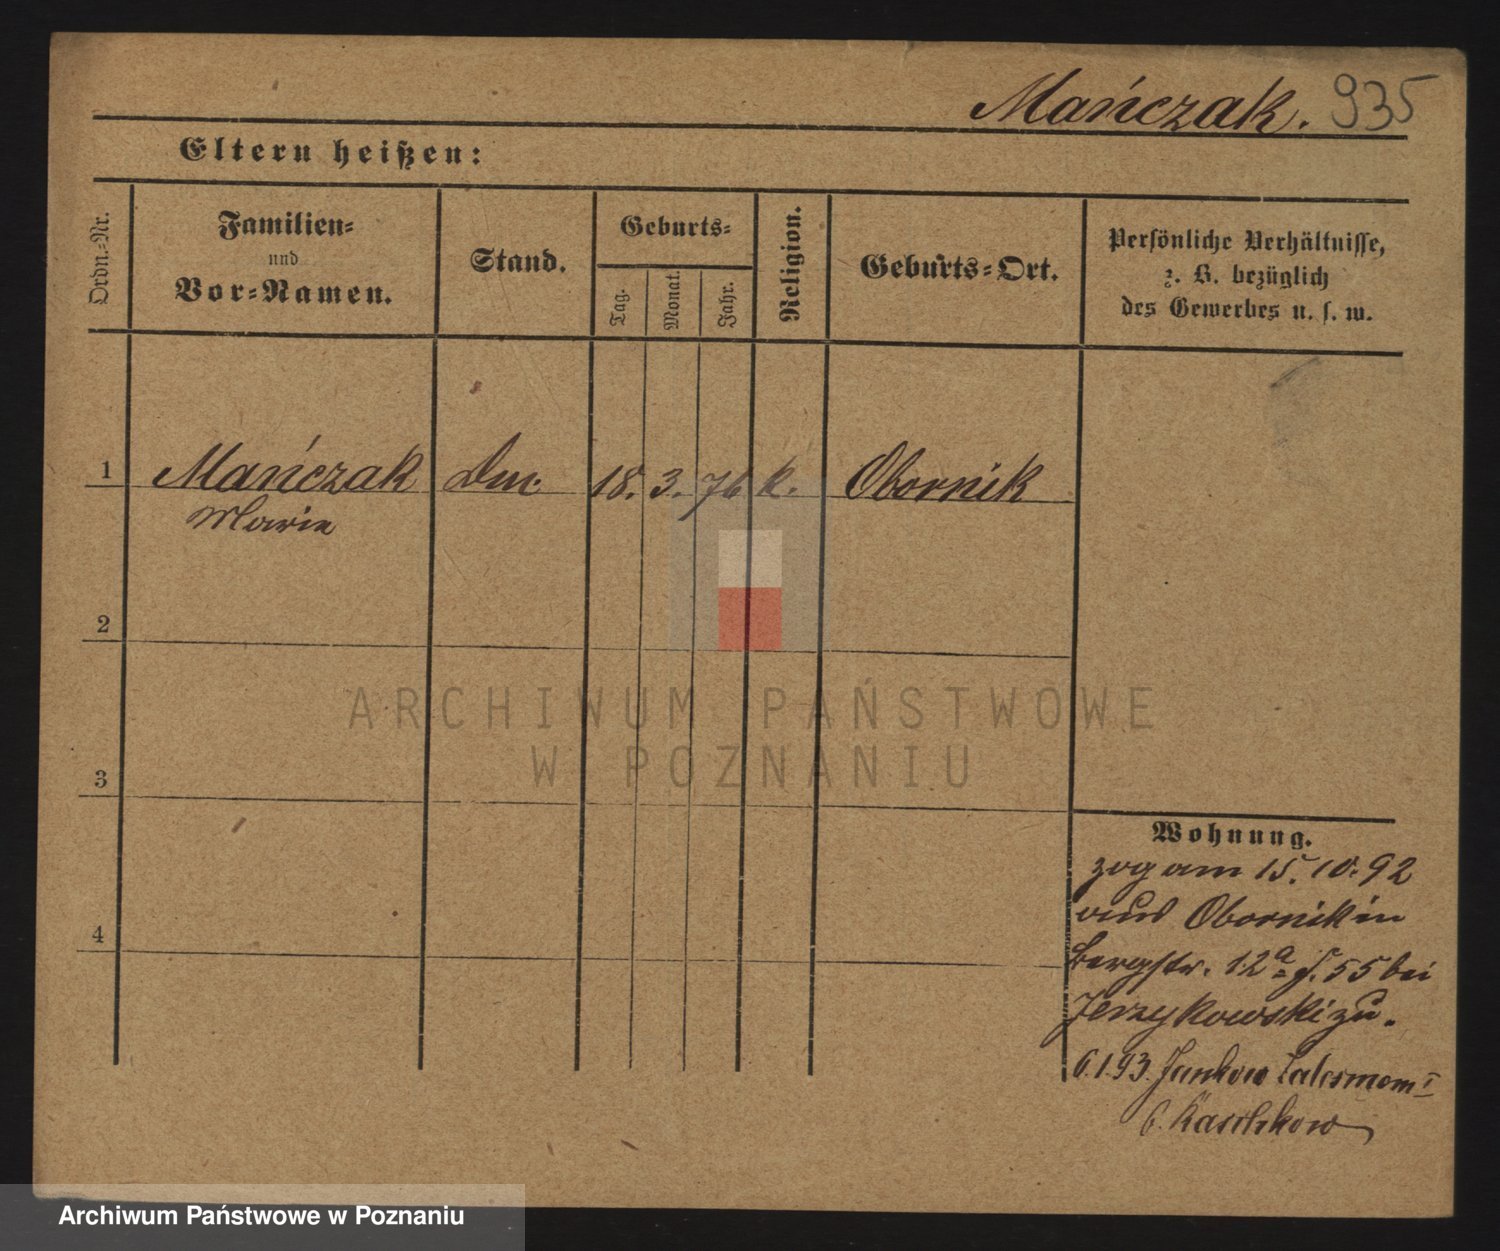 Mańczak. 935
Eltern heißen:
Ordn.-Nr.
Familien-
und
Vor-Namen.
Stand.
Geburts-
Tag.
Monat.
Jahr.
Religion.
Geburts-Ort.
Persönliche Verhältnisse,
z. B. bezüglich
des Gewerbes u. s. w.
1 Mańczak 18. 3. 76 k. Obornik
Marie
2
3
4
Wohnung.
zog am 15. 10. 92
aus Obornik in
Bergstr. 12a 55 bei
Jerzykowski zu.
6.1.93. Jankow
ARCHIWUM PAŃSTWOWE
W POZNANIU
Archiwum Państwowe w Poznaniu